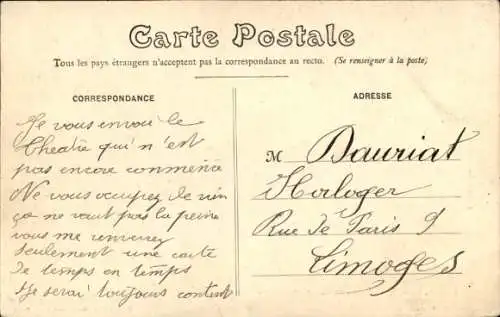 Carte Postale
Tous les pays étrangers n'acceptent pas la correspondance au recto. (Se renseigner à la poste)
CORRESPONDANCE
Je vous envoi le
Theatre qui n'est
pas encore commencé
Ne vous occupez de rien
ça ne vaut pas la peine
vous me renverrez
seulement une carte
de temps en temps
Je serai toujours content
ADRESSE
M Dauriat
Horloger
Rue de Paris 9
Limoges